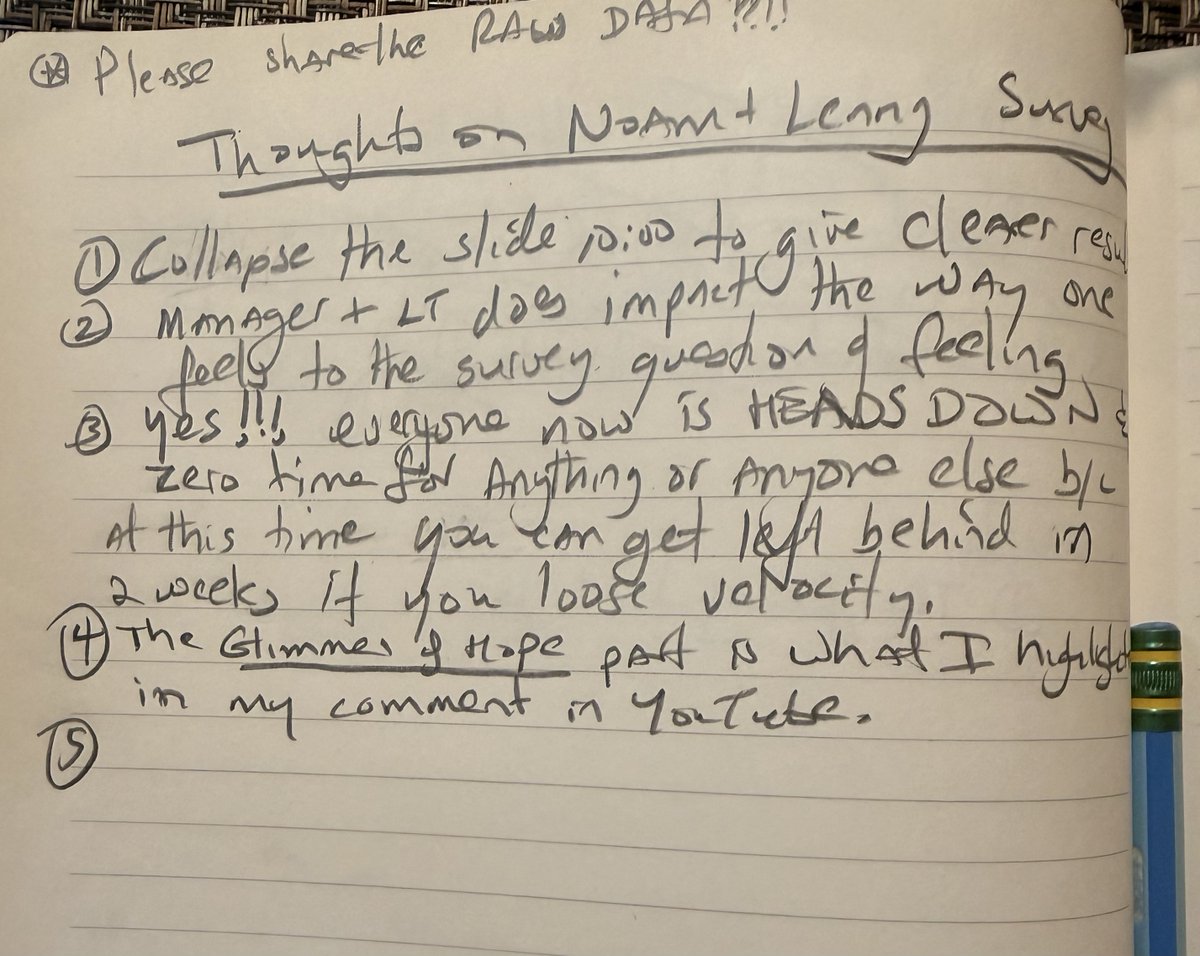 * Please share the RAW DATA ?!!!
Thoughts on NoAm + Lenny Survey
1 Collapse the slide 10:00 to give clearer resu
2 Manager + LT does impact the way one
feels to the survey question of feeling
3 yes!!! everyone now is HEADS DOWN &
zero time for Anything or Anyone else b/c
At this time you can get left behind in
2 weeks if you loose velocity.
4 The Glimmer of Hope part is what I highlight
in my comment in YouTube.
5